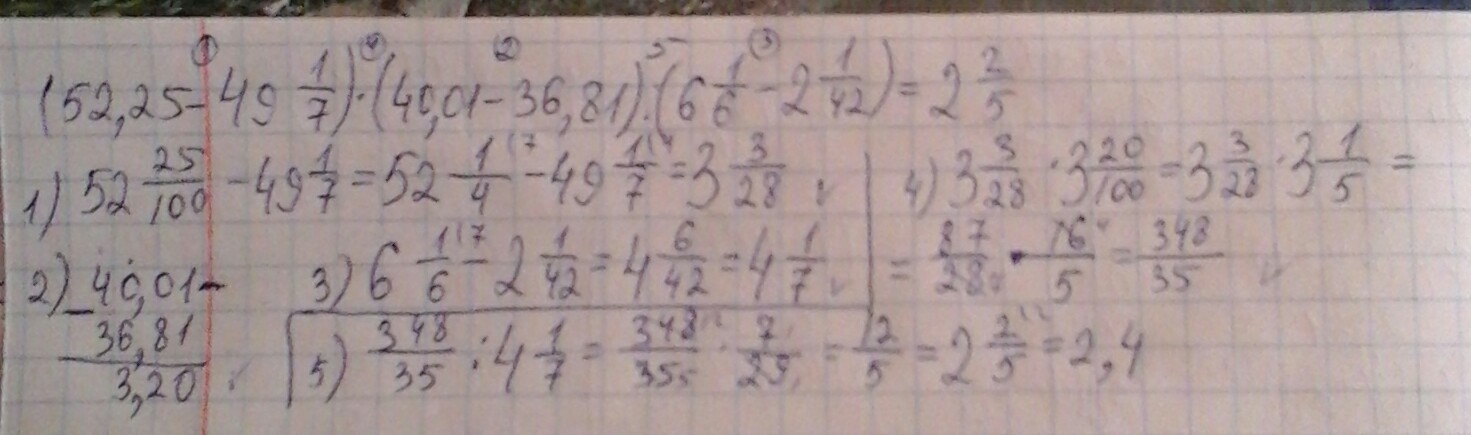 (52,25 - 49 1/7) · (40,01 - 36,81) : (6 1/6 - 2 1/42) = 2 2/5
1) 52 25/100 - 49 1/7 = 52 1/4 - 49 1/7 = 3 3/28
4) 3 3/28 · 3 20/100 = 3 3/28 · 3 1/5 =
= 87/28 · 16/5 = 348/35
2) 40,01 -
36,81
3,20
3) 6 1/6 - 2 1/42 = 4 6/42 = 4 1/7
5) 348/35 : 4 1/7 = 348/35 · 7/29 = 12/5 = 2 2/5 = 2,4